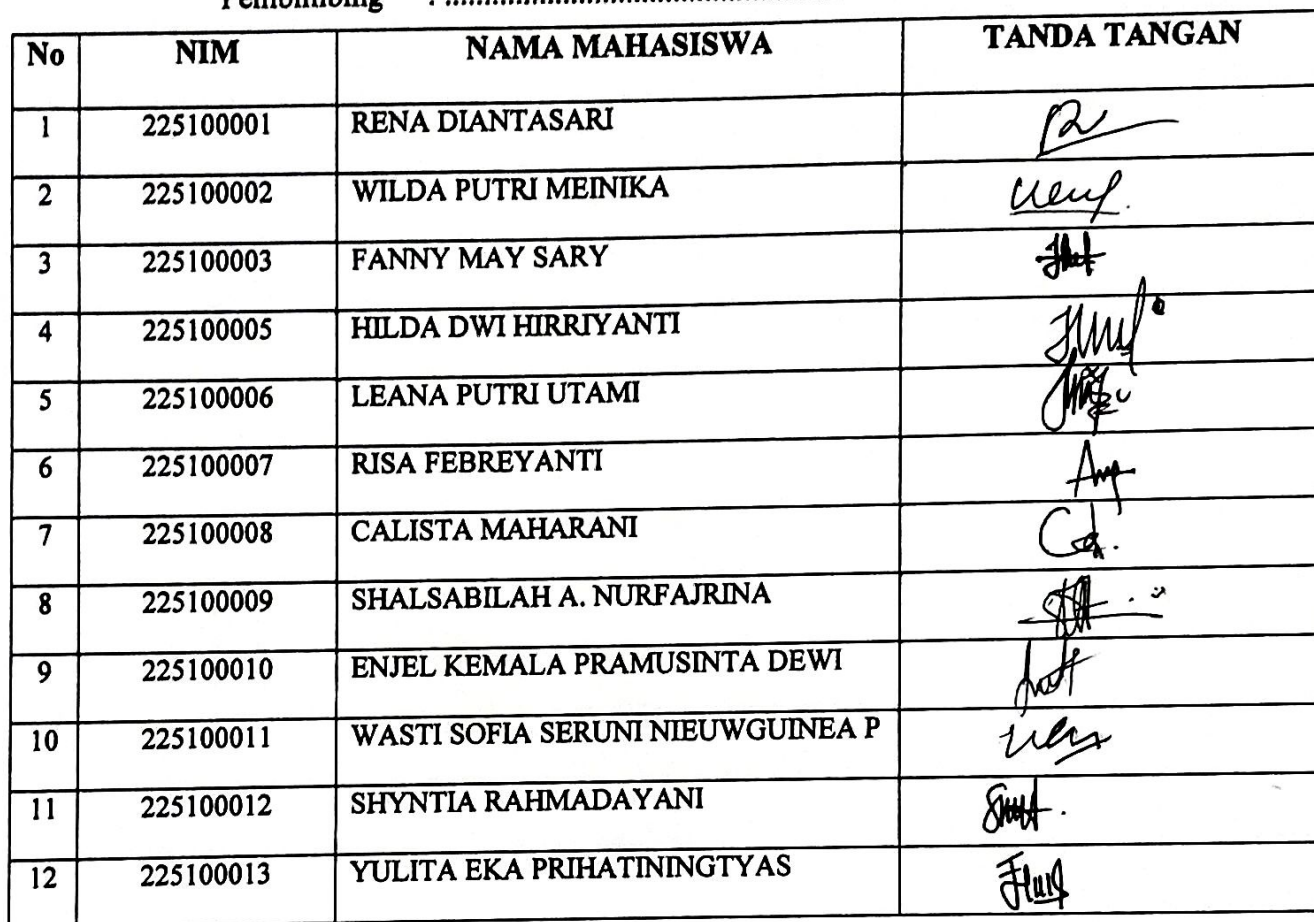 Pembimbing : ..........................................
No NIM NAMA MAHASISWA TANDA TANGAN
1 225100001 RENA DIANTASARI
2 225100002 WILDA PUTRI MEINIKA
3 225100003 FANNY MAY SARY
4 225100005 HILDA DWI HIRRIYANTI
5 225100006 LEANA PUTRI UTAMI
6 225100007 RISA FEBREYANTI
7 225100008 CALISTA MAHARANI
8 225100009 SHALSABILAH A. NURFAJRINA
9 225100010 ENJEL KEMALA PRAMUSINTA DEWI
10 225100011 WASTI SOFIA SERUNI NIEUWGUINEA P
11 225100012 SHYNTIA RAHMADAYANI
12 225100013 YULITA EKA PRIHATININGTYAS